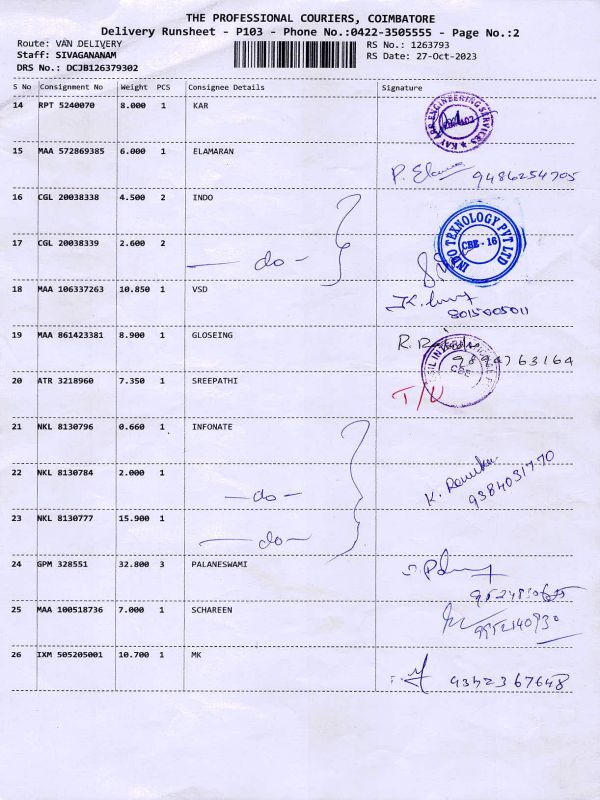 THE PROFESSIONAL COURIERS, COIMBATORE
Delivery Runsheet - P103 - Phone No.:0422-3505555 - Page No.:2
Route: VAN DELIVERY RS No.: 1263793
Staff: SIVAGANANAM RS Date: 27-Oct-2023
DRS No.: DCJB126379302
S No Consignment No Weight PCS Consignee Details Signature
14 RPT 5240070 8.000 1 KAR
ENGINEERING SERVICES
15 MAA 572869385 6.000 1 ELAMARAN
9486254705
16 CGL 20038338 4.500 2 INDO
INDO TEXNOLOGY PVT LTD
CBE - 16
17 CGL 20038339 2.600 2 -do-
18 MAA 106337263 10.850 1 VSD
8015005011
19 MAA 861423381 8.900 1 GLOSEING
R.
9894763164
CBE
20 ATR 3218960 7.350 1 SREEPATHI
T/U
21 NKL 8130796 0.660 1 INFONATE
22 NKL 8130784 2.000 1 -do-
K.
23 NKL 8130777 15.900 1 -do-
24 GPM 328551 32.800 3 PALANESWAMI
25 MAA 100518736 7.000 1 SCHAREEN
9952140930
26 IXM 505205001 10.700 1 MK
9342367648